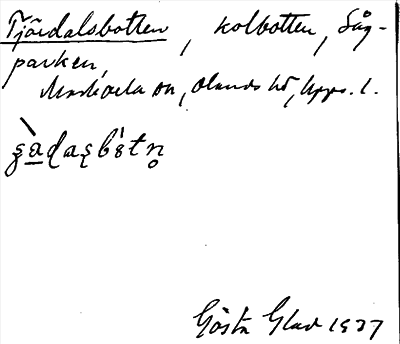 Tjärdalsbotten, kolbotten, Såg-
parken,
Markarla sn, Olands hd, Upps. l.
Gösta Glad 1937